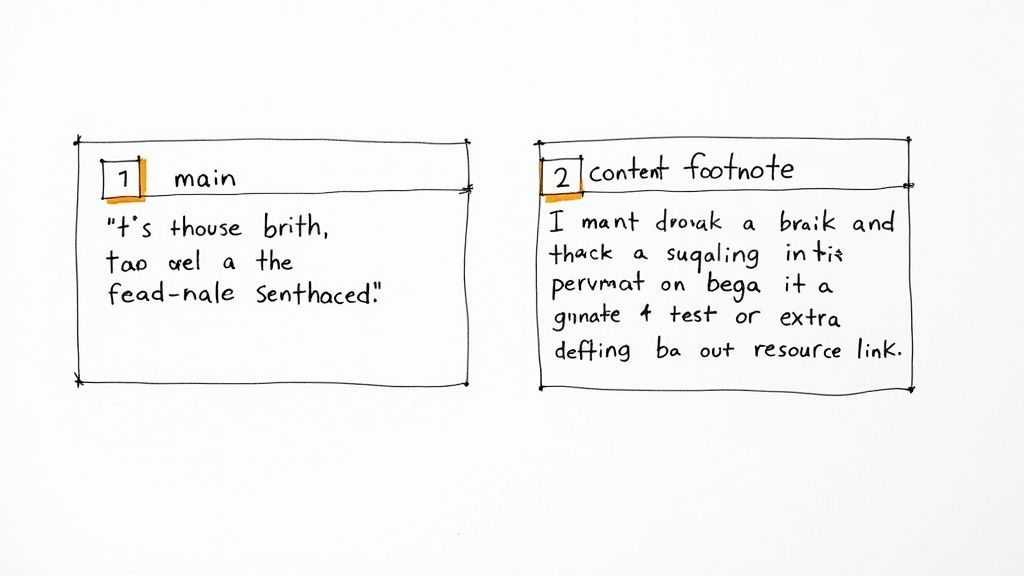 1 main
"t's thouse brith,
tao orel a the
fead-nale senthaced."
2 content footnote
I mant drovak a braik and
thack a suqaling in tis
pervmat on bega it a
gnnate 4 test or extra
defting ba out resource link.